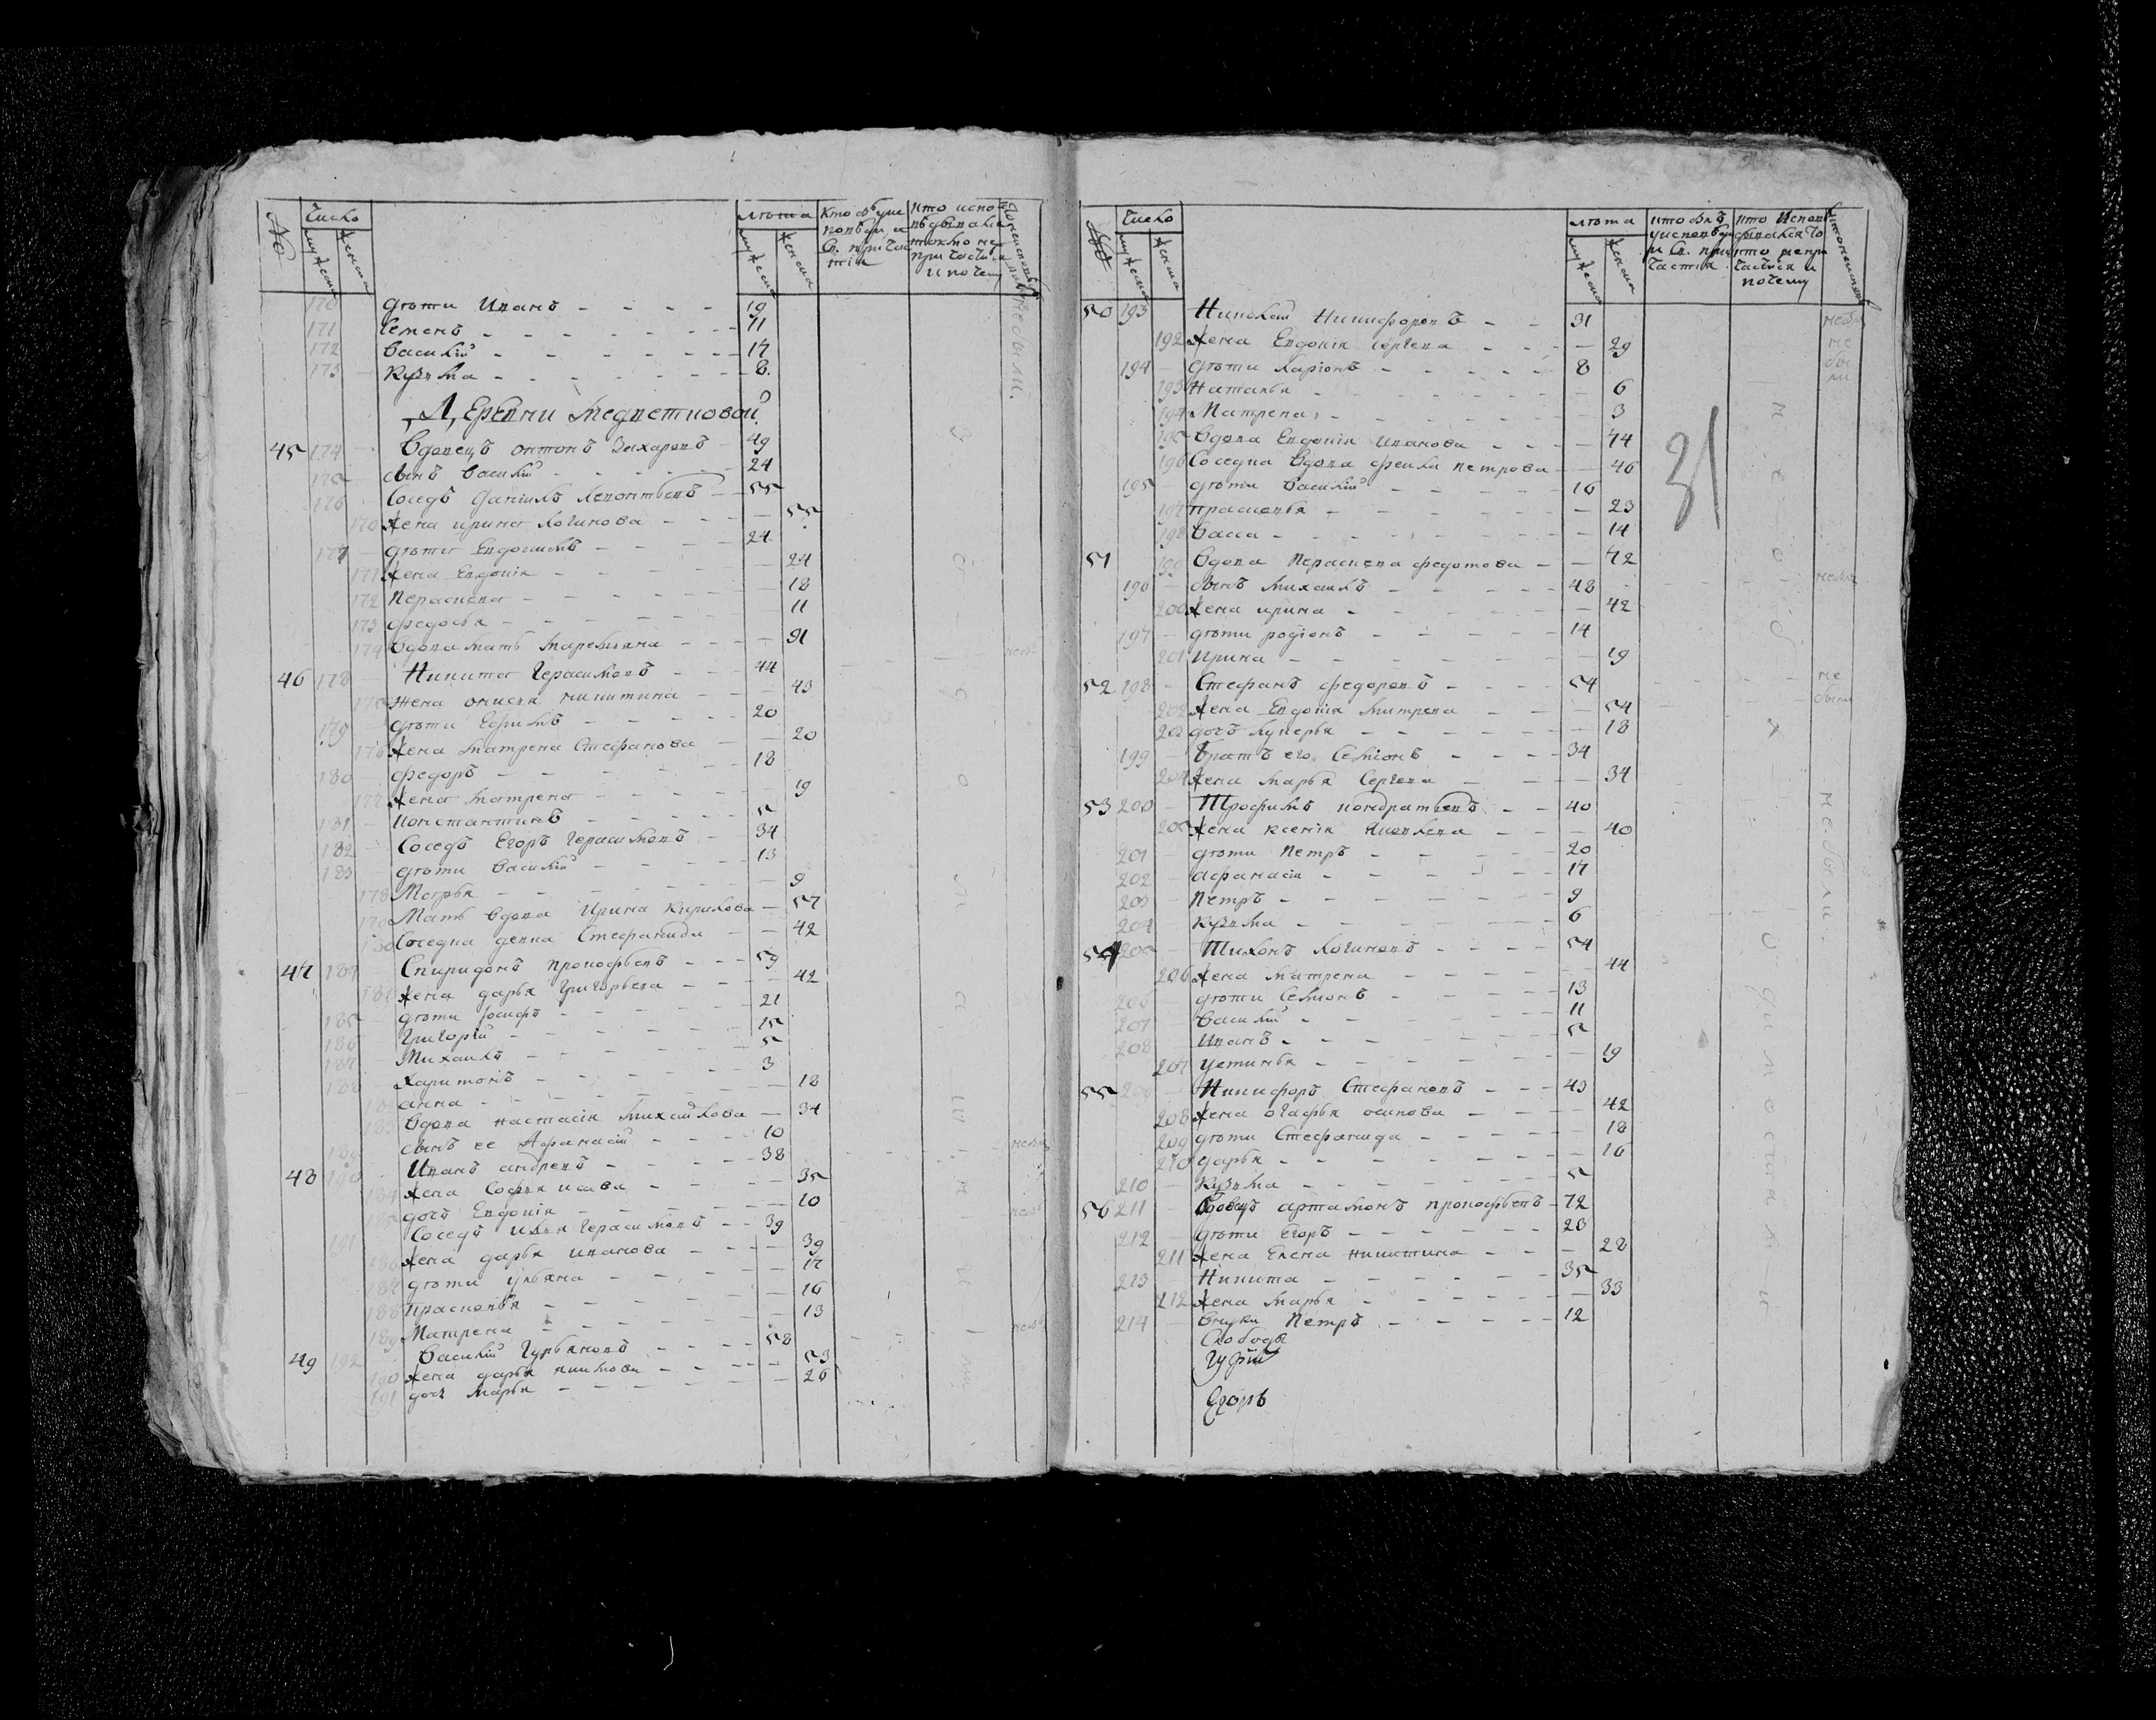 No
Число
мужеска
женска
лѣта
мужеска
женска
кто были у испо
вѣди и
Св. причас
тіи
кто испо
вѣдывался
токмо не
причастился
и почему
170 дѣти Иванъ 19
171 Семенъ 11
172 Василій 17
173 Кузьма 8
не были.
Деревни Медветковой
45 174 Вдовецъ онтонъ Захаровъ 49
175 сынъ Василій 24
176 Соседъ Данилъ Леонтьевъ 55
170 жена ирина Логинова 55
177 дѣти Евдокимъ 24
171 жена Евдокія 24
172 Парасковья 18
173 Федосья 11
174 Вдова мать Маремьяна 91
46 178 Никита Герасимовъ 44
175 жена онисья никитина 43
179 дѣти Ефимъ 20
176 жена матрена Стефанова 20
180 Федоръ 18
177 жена матрена 19
181 константинъ 5
182 Соседъ Егоръ Герасимовъ 34
183 дѣти Василій 13
178 Марья 9
179 Мать вдова Ирина Кирилова 57
180 Соседка девка Стефанида 42
47 184 Спиридонъ прокофьевъ 59
181 жена дарья Григорьева 42
185 дѣти Іосифъ 21
186 Григорій 15
187 Михаилъ 5
188 Харитонъ 3
182 анна 18
183 вдова настасія Михайлова 34
189 сынъ ее Афанасій 10
48 190 Иванъ андревъ 38
184 жена Софья исаева 35
185 дочь Евдокія 10
191 Соседъ илья Герасимовъ 39
186 жена дарья иванова 39
187 дѣти ульяна 17
188 прасковья 16
189 Матрена 13
49 192 Василій Гурьяновъ 58
190 жена дарья якимова 53
191 дочь марья 26
Число
мужеска
женска
лѣта
мужеска
женска
кто былъ
у исповеди
и Св. при
частія
кто Испов
едывался то
кто не при
частился и
почему
50 193 Николай Никифоровъ 31
192 жена Евдокія Сергева 29
не
бы
ли
194 дѣти Ларіонъ 8
193 Наталья 6
194 Матрена 3
195 вдова Евдокія иванова 74
196 Соседка Вдова фекла петрова 46
195 дѣти Василій 16
197 прасковья 23
198 Васса 14
31
51 199 Вдова Параскева федотова 72
196 сынъ михаилъ 48
200 жена ирина 42
197 дѣти родіонъ 14
201 Ирина 19
52 198 Стефанъ федоровъ 54
не
были
202 жена Евдокія дмитрева 54
203 дочь Лукерья 18
199 братъ его Семіонъ 34
204 жена марья Сергева 34
53 200 Трофимъ кондратьевъ 40
205 жена ксенія яковлева 40
не были
201 дѣти петръ 20
202 афанасій 17
203 Петръ 9
204 кузьма 6
54 205 Тихонъ логиновъ 54
206 жена матрена 44
206 дѣти Семіонъ 13
207 Василій 11
208 Иванъ 5
207 устинья 19
55 209 Никифоръ Стефановъ 43
208 жена огафья осипова 42
209 дѣти Стефанида 18
210 дарья 16
210 кузьма 5
56 211 Вдовецъ артамонъ прокофьевъ 72
212 дѣти Егоръ 23
211 жена Елена никитина 28
213 Никита 35
212 жена марья 33
214 внуки Петръ 12
Слободы
Егоръ